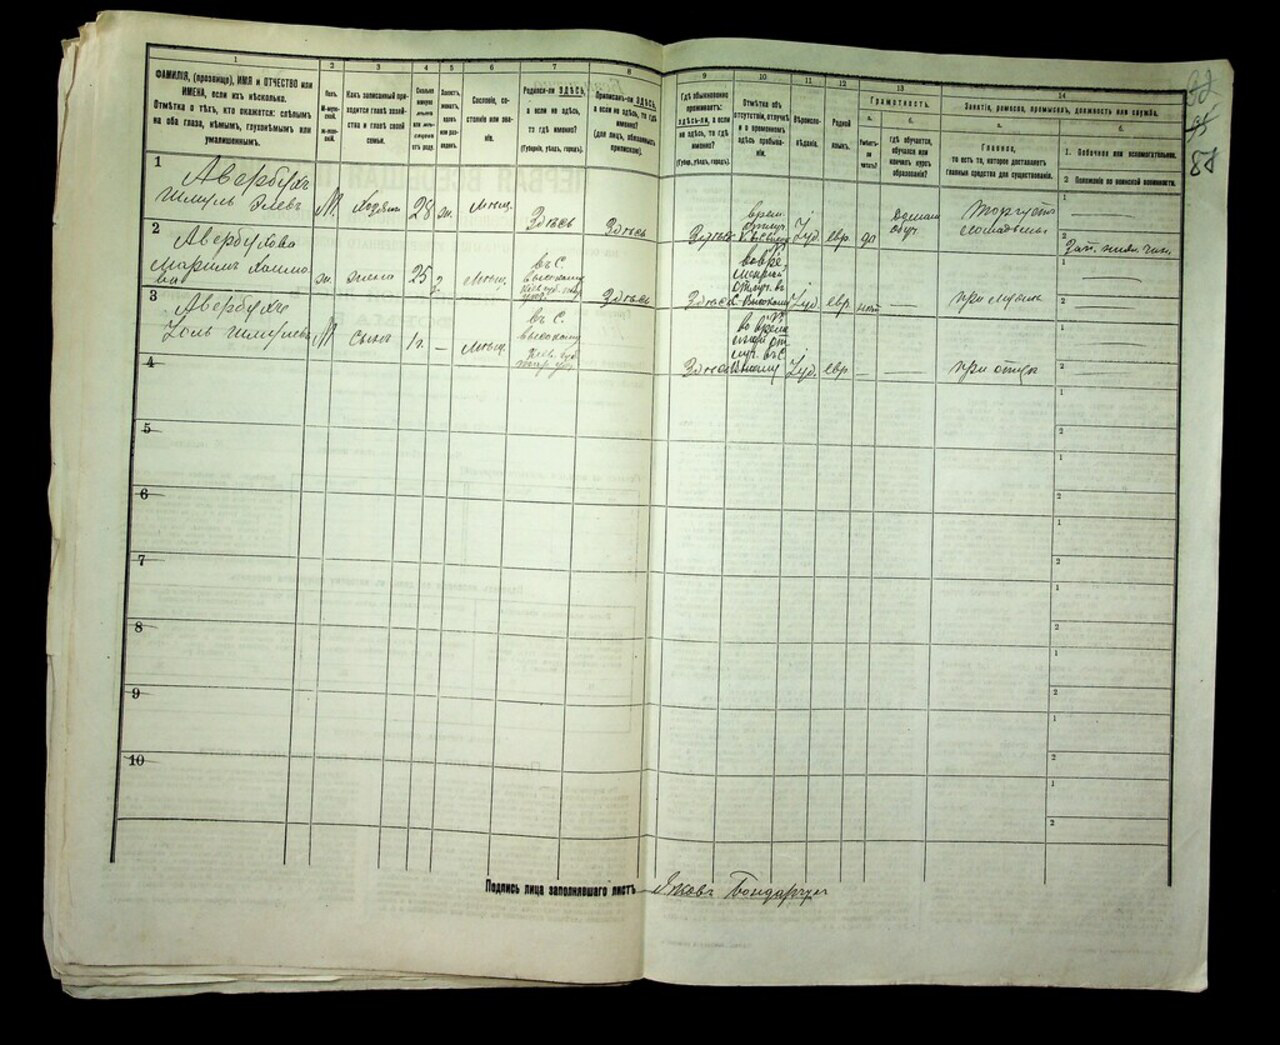 1 2 3 4 5 6 7 8 9 10 11 12 13 14
ФАМИЛІЯ, (прозвище), ИМЯ и ОТЧЕСТВО или
ИМЕНА, если ихъ нѣсколько.
Отмѣтка о тѣхъ, кто окажется: слѣпымъ
на оба глаза, нѣмымъ, глухонѣмымъ или
умалишеннымъ.
Полъ.
М-муж-
ской.
Ж-жен-
скій.
Какъ записанный при-
ходится главѣ хозяй-
ства и главѣ своей
семьи.
Сколько
минуло
лѣтъ
или мѣ-
сяцевъ
отъ роду.
Холостъ,
женатъ,
вдовъ
или раз-
веденъ.
Сословіе, со-
стояніе или зва-
ніе.
Родился-ли ЗДѢСЬ,
а если не здѣсь,
то гдѣ именно?
(Губернія, уѣздъ, городъ).
Приписанъ-ли ЗДѢСЬ,
а если не здѣсь, то гдѣ
именно?
(для лицъ, обязанныхъ
припискою).
Гдѣ обыкновенно
проживаетъ:
здѣсь-ли, а если
не здѣсь, то гдѣ
именно?
(Губер., уѣздъ, городъ).
Отмѣтка объ
отсутствіи, отлучкѣ
и о временномъ
здѣсь пребыва-
ніи.
Вѣроиспо-
вѣданіе.
Родной
языкъ.
Грамотность.
а.
Умѣетъ-
ли
читать?
б.
гдѣ обучается,
обучался или
кончилъ курсъ
образованія?
Занятіе, ремесло, промыселъ, должность или служба.
а.
Главное,
то есть то, которое доставляетъ
главныя средства для существованія.
б.
1. Побочное или вспомогательное.
2 Положеніе по воинской повинности.
88
1
Авербухъ
Шмуль Элевъ М. Хозяинъ 28 ж. Мѣщ. Здѣсь Здѣсь Здѣсь
врем. Іуд. евр. да
домаш.
обуч.
Торгуетъ
1
2
2
Авербухова
ж. жена 25 Мѣщ.
въ С.
Здѣсь Здѣсь Іуд. евр. нѣтъ — при мужѣ
1
2
3
Авербухъ
М сынъ 1г. — Мѣщ.
въ С.
Здѣсь Іуд. евр — — при отцѣ
1
2
4
1
2
5
1
2
6
1
2
7
1
2
8
1
2
9
1
2
10
1
2
Подпись лица заполнявшаго листъ Яковъ Бондарчукъ